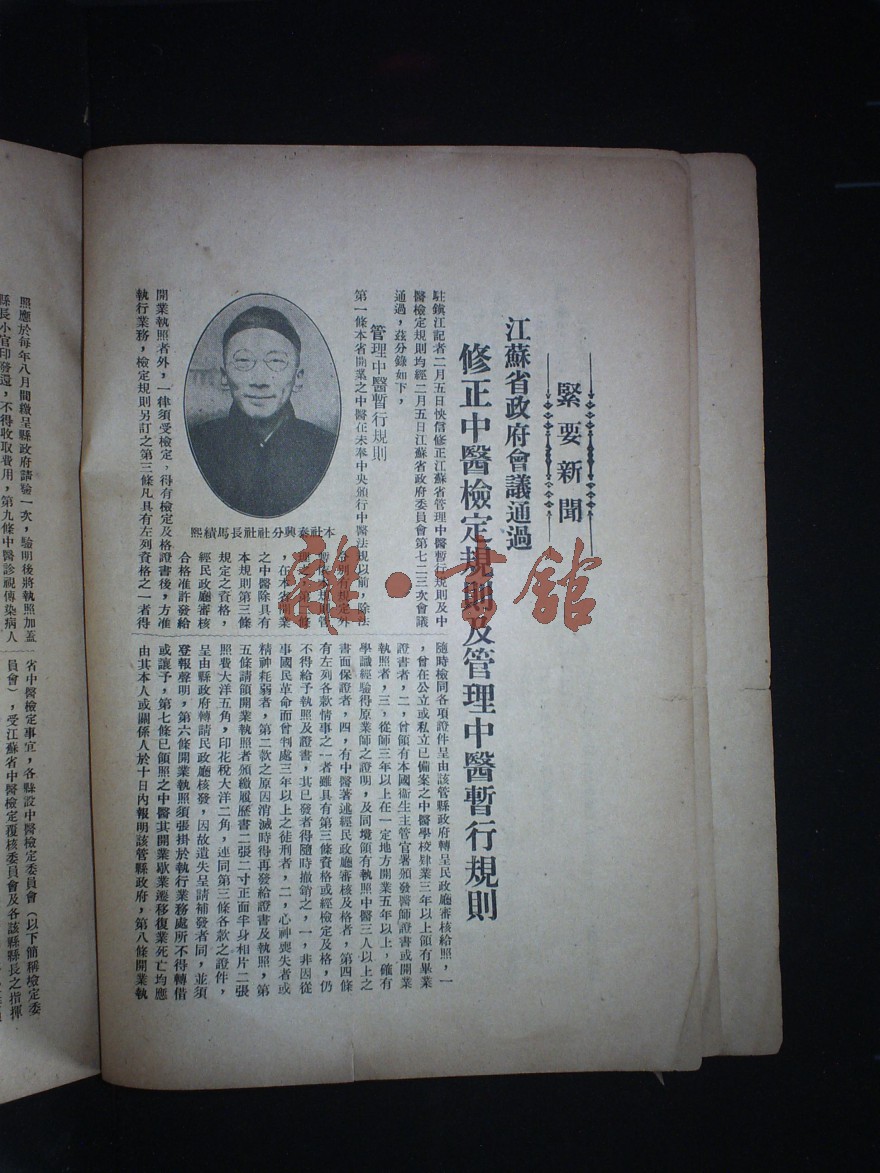 緊要新聞
江蘇省政府會議通過
修正中醫檢定規則及管理中醫暫行規則
駐鎭江記者二月五日快信修正江蘇省管理中醫暫行規則及中
醫檢定規則均經二月五日江蘇省政府委員會第七二三次會議
通過，茲分錄如下，
管理中醫暫行規則
第一條本省開業之中醫在未奉中央頒行中醫法規以前，除法
令別有規定外
，在本省開業
之中醫除具有
本規則第三條
規定之資格，
經民政廳審核
合格准許發給
本社泰興分社社長馬績熙
開業執照者外，一律須受檢定，得有檢定及格證書後，方准
執行業務，檢定規則另訂之第三條凡具有左列資格之一者得
隨時檢同各項證件呈由該管縣政府轉呈民政廳審核給照，一
，曾在公立或私立已備案之中醫學校肄業三年以上領有畢業
證書者，二，曾領有本國衞生主管官署頒發醫師證書或開業
執照者，三，從師三年以上在一定地方開業五年以上，確有
學識經驗得原業師之證明，及同境領有執照中醫三人以上之
書面保證者，四，有中醫著述經民政廳審核及格者，第四條
有左列各款情事之一者雖具有第三條資格或經檢定及格，仍
不得給予執照及證書，其已發者得隨時撤銷之，一，非因從
事國民革命而曾判處三年以上之徒刑者，二，心神喪失者或
精神耗弱者，第二款之原因消滅時得再發給證書及執照，第
五條請領開業執照者須繳履歷書二張二寸正面半身相片二張
照費大洋五角，印花稅大洋二角，連同第三條各款之證件，
呈由縣政府轉請民政廳核發，因故遺失呈請補發者同，並須
登報聲明，第六條開業執照須張掛於執行業務處所不得轉借
或讓予，第七條已領照之中醫其開業歇業遷移復業死亡均應
由其本人或關係人於十日內報明該管縣政府，第八條開業執
照應於每年八月間繳呈縣政府請驗一次，驗明後將執照加蓋
縣長小官印發還，不得收取費用，第九條中醫診視傳染病人
省中醫檢定事宜，各縣設中醫檢定委員會（以下簡稱檢定委
員會），受江蘇省中醫檢定覆核委員會及各該縣縣長之指揮
書館